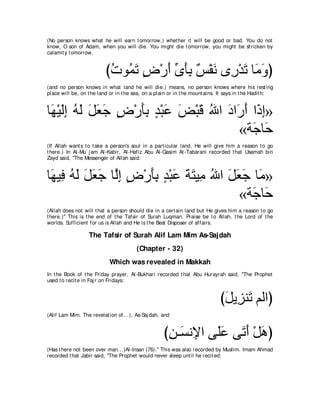 (No person knows what he will earn tomorrow,) whether it will be good or bad. You do not
know, O son of Adam, when you will die. You might die tomorrow, you might be stricken by
calamity tomorrow.
(وَمَا تَدْرِى نَفْسٌ بِأَىِّ أَرْضٍ تَمُوتُ)
(and no person knows in what land he will die.) means, no person knows where his resting
place will be, on the land or in the sea, on a plain or in the mountains. It says in the Hadith:
«إِذَا أَرَادَ اللهُ قَبْضَ عَبْدٍ بِأَرْضٍ جَعَلَ لَهُ إِلَيْهَا
حَاجَةً»
(If Allah wants to take a person's soul in a particular land, He will give him a reason to go
there.) In Al-Mu`jam Al-Kabir, Al-Hafiz Abu Al-Qasim At-Tabarani recorded that Usamah bin
Zayd said, "The Messenger of Allah said:
«مَا جَعَلَ اللهُ مِيتَةَ عَبْدٍ بِأَرْضٍ إِلَّا جَعَلَ لَهُ فِيهَا
حَاجَةً»
(Allah does not will that a person should die in a certain land but He gives him a reason to go
there.)" This is the end of the Tafsir of Surah Luqman. Praise be to Allah, the Lord of the
worlds, Sufficient for us is Allah and He is the Best Disposer of affairs.
The Tafsir of Surah Alif Lam Mim As-Sajdah
(Chapter - 32)
Which was revealed in Makkah
In the Book of the Friday prayer, Al-Bukhari recorded that Abu Hurayrah said, "The Prophet
used to recite in Fajr on Fridays:
(الم تَنزِيلَ)
(Alif Lam Mim. The revelation of...), As-Sajdah, and
(هَلْ أَتَى عَلَى الإِنسَـنِ)
(Has there not been over man...)Al-Insan (76)." This was also recorded by Muslim. Imam Ahmad
recorded that Jabir said, "The Prophet would never sleep until he recited: